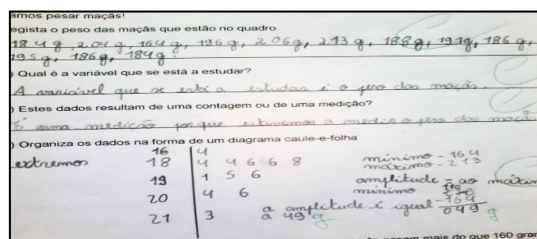 amos pesar maçãs!
egista o peso das maçãs que estão no quadro.
184 g, 204 g, 164 g, 196 g, 206 g, 213 g, 188 g, 191 g, 186 g,
195 g, 186 g, 184 g.
) Qual é a variável que se está a estudar?
A variável que se está a estudar é o peso das maçãs.
) Estes dados resultam de uma contagem ou de uma medição?
É uma medição porque estivemos a medir o peso das maçãs
) Organiza os dados na forma de um diagrama caule-e-folha
extremos
16 | 4
18 | 4 4 6 6 8
19 | 1 5 6
20 | 4 6
21 | 3
mínimo - 164
máximo - 213
amplitude = ao máximo
mínimo
- 164
049 g
a amplitude é igual
a 49 g
passem mais do que 160 gram